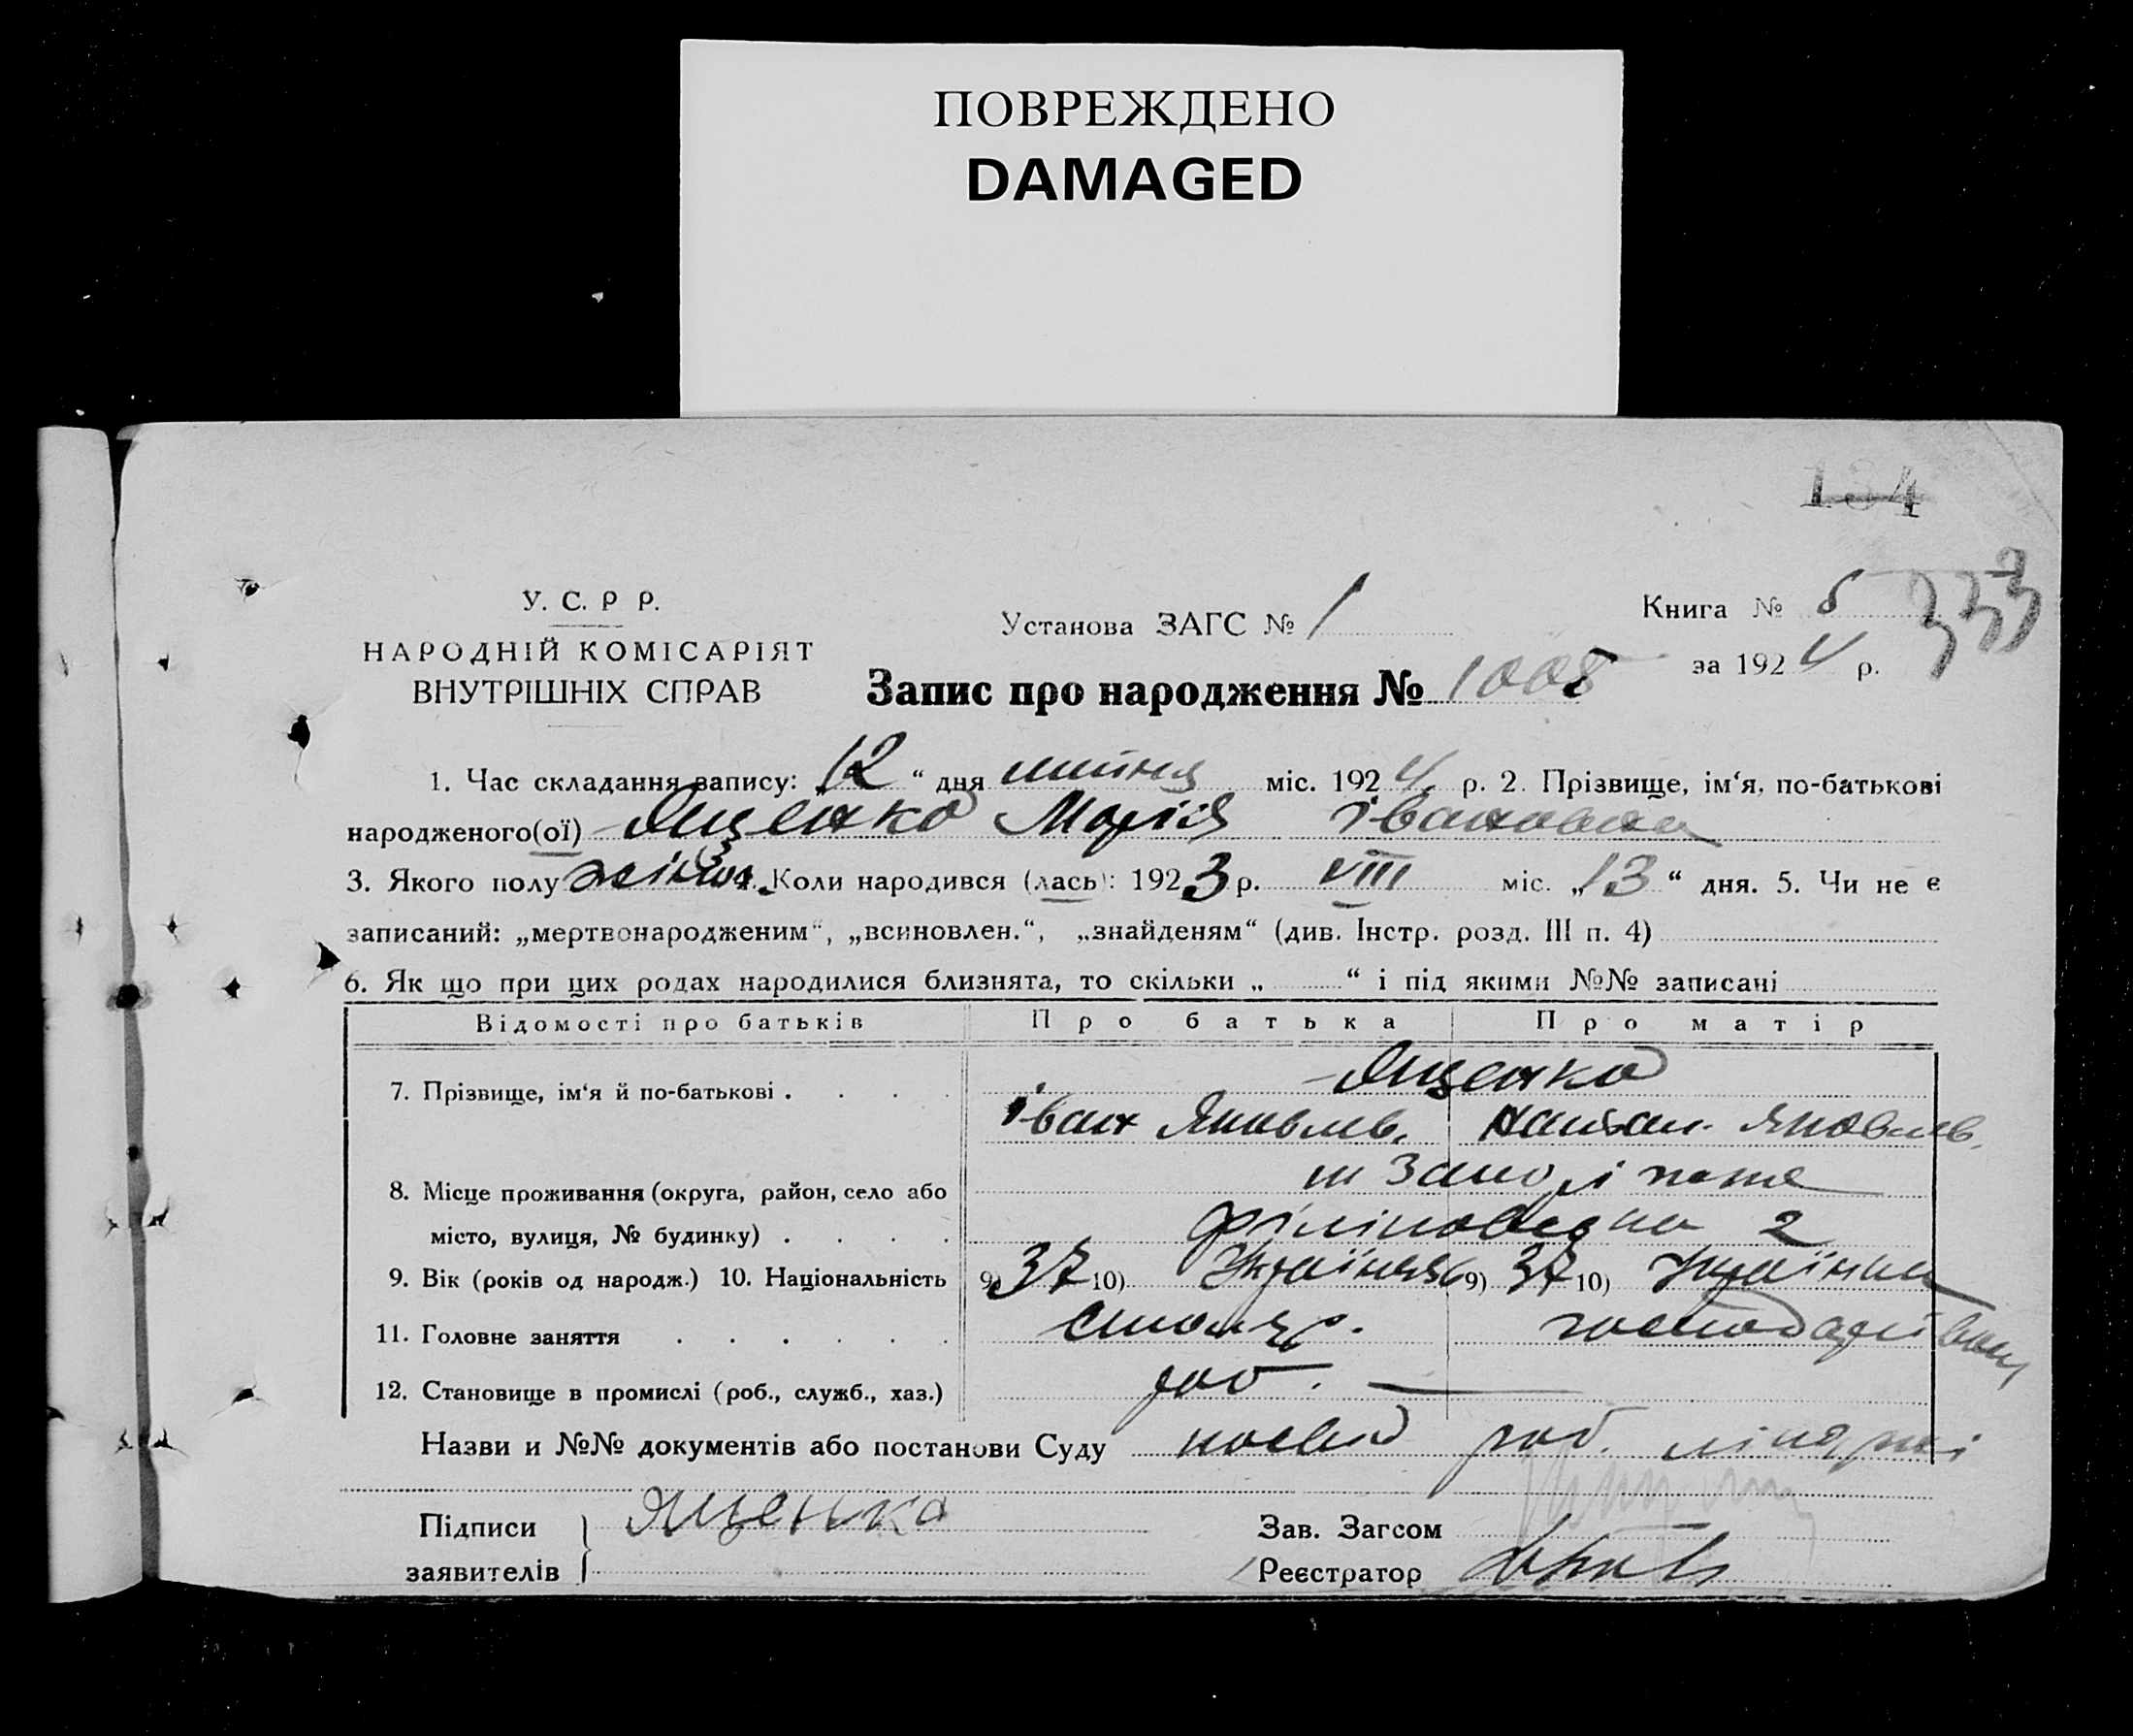 ПОВРЕЖДЕНО
DAMAGED
134
333
У. С. Р Р.
НАРОДНІЙ КОМІСАРІЯТ
ВНУТРІШНІХ СПРАВ
Установа ЗАГС № 1
Книга № 5
за 1924 р.
Запис про народження № 1008
1. Час складання запису: 12 “ дня міс. 1924 р. 2. Прізвище, ім‘я, по-батькові
народженого(ої) Ященко Марія Івановна
3. Якого полу жіноч. 4. Коли народився (лась): 1923 р. VIII міс. „13“ дня. 5. Чи не є
записаний: „мертвонародженим“, „всиновлен.“, „знайденям“ (див. Інстр. розд. III п. 4)
6. Як що при цих родах народилися близнята, то скільки „ “ і під якими №№ записані
Відомості про батьків Про батька Про матір
7. Прізвище, ім‘я й по-батькові . . . . Ященко
Іван Яковлев. Яковлев.
8. Місце проживання (округа, район, село або
місто, вулиця, № будинку) . . . . 2
9. Вік (років од народж.) 10. Національність 9) 37 10) Українец 9) 37 10) Українка
11. Головне заняття . . . . . . столяр.
12. Становище в промислі (роб., служб., хаз.) роб. —
Назви и №№ документів або постанови Суду посвід роб. лікарні
Підписи Ященко
заявителів
Зав. Загсом
Реєстратор